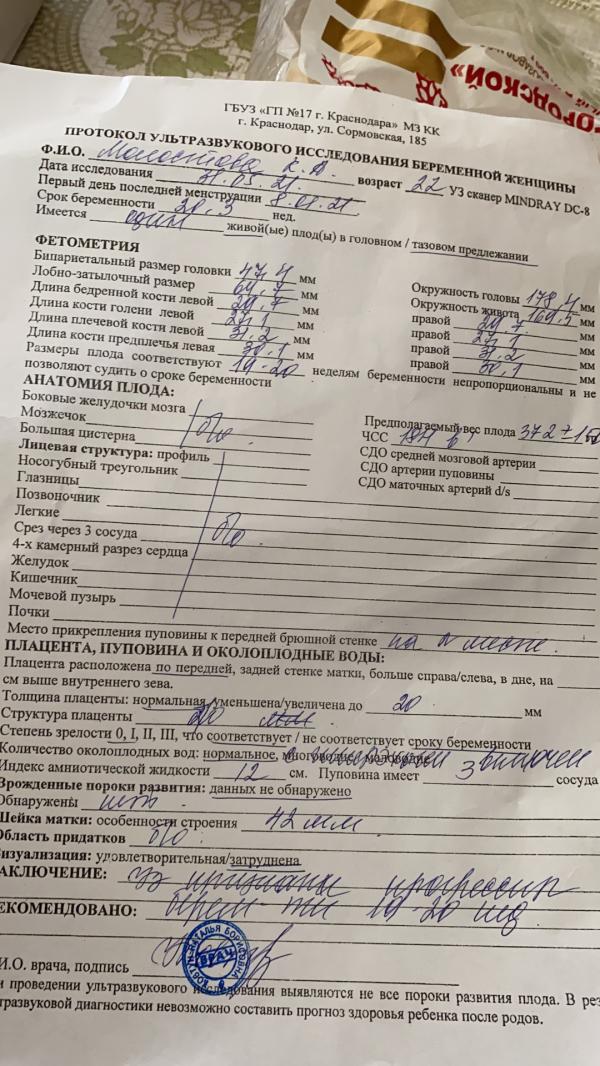 ГОРОДСКОЙ»
ГБУЗ «ГП №17 г. Краснодара» МЗ КК
г. Краснодар, ул. Сормовская, 185
ПРОТОКОЛ УЛЬТРАЗВУКОВОГО ИССЛЕДОВАНИЯ БЕРЕМЕННОЙ ЖЕНЩИНЫ
Ф.И.О. возраст 22 УЗ сканер MINDRAY DC-8
Дата исследования 31.05.21.
Первый день последней менструации 8.01.21
Срок беременности 20,3 нед.
Имеется один живой(ые) плод(ы) в головном / тазовом предлежании
ФЕТОМЕТРИЯ
Бипариетальный размер головки 47,4 мм Окружность головы 178,4 мм
Лобно-затылочный размер 64,7 мм Окружность живота 169,5 мм
Длина бедренной кости левой 29,7 мм правой 29,7 мм
Длина кости голени левой 27,1 мм правой 27,1 мм
Длина плечевой кости левой 31,2 мм правой 31,2 мм
Длина кости предплечья левая 30,1 мм правой 30,1 мм
Размеры плода соответствуют 19-20 неделям беременности непропорциональны и не
позволяют судить о сроке беременности
АНАТОМИЯ ПЛОДА:
Боковые желудочки мозга Предполагаемый вес плода 372±
Мозжечок б/о ЧСС
Большая цистерна СДО средней мозговой артерии
Лицевая структура: профиль СДО артерии пуповины
Носогубный треугольник СДО маточных артерий d/s
Глазницы
Позвоночник
Легкие
Срез через 3 сосуда б/о
4-х камерный разрез сердца
Желудок
Кишечник
Мочевой пузырь
Почки
Место прикрепления пуповины к передней брюшной стенке на месте.
ПЛАЦЕНТА, ПУПОВИНА И ОКОЛОПЛОДНЫЕ ВОДЫ:
Плацента расположена по передней, задней стенке матки, больше справа/слева, в дне, на
см выше внутреннего зева.
Толщина плаценты: нормальная, уменьшена/увеличена до 20 мм
Структура плаценты
Степень зрелости 0, I, II, III, что соответствует / не соответствует сроку беременности
Количество околоплодных вод: нормальное, многоводие, маловодие
Индекс амниотической жидкости 12 см. Пуповина имеет 3 сосуда
Врожденные пороки развития: данных не обнаружено
Обнаружены нет
Шейка матки: особенности строения 42 мм
Область придатков б/о
Визуализация: удовлетворительная/затруднена
ЗАКЛЮЧЕНИЕ: Уз признаки прогрессир
РЕКОМЕНДОВАНО: берем-ти 19-20 нед
НАТАЛЬЯ БОРИСОВНА
ВРАЧ
И.О. врача, подпись
и проведении ультразвукового исследования выявляются не все пороки развития плода. В рез
тразвуковой диагностики невозможно составить прогноз здоровья ребенка после родов.